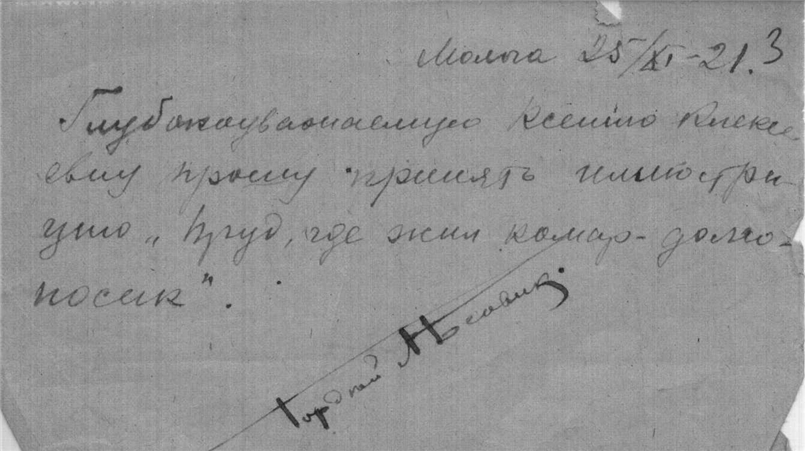 Молога 25/XI-21. 3
Глубокоуважаемую Ксению Алексе
евну прошу принять иллюстра-
цию „Пруд, где жил комар-долго-
носик".
Гордей Лѣсовик.